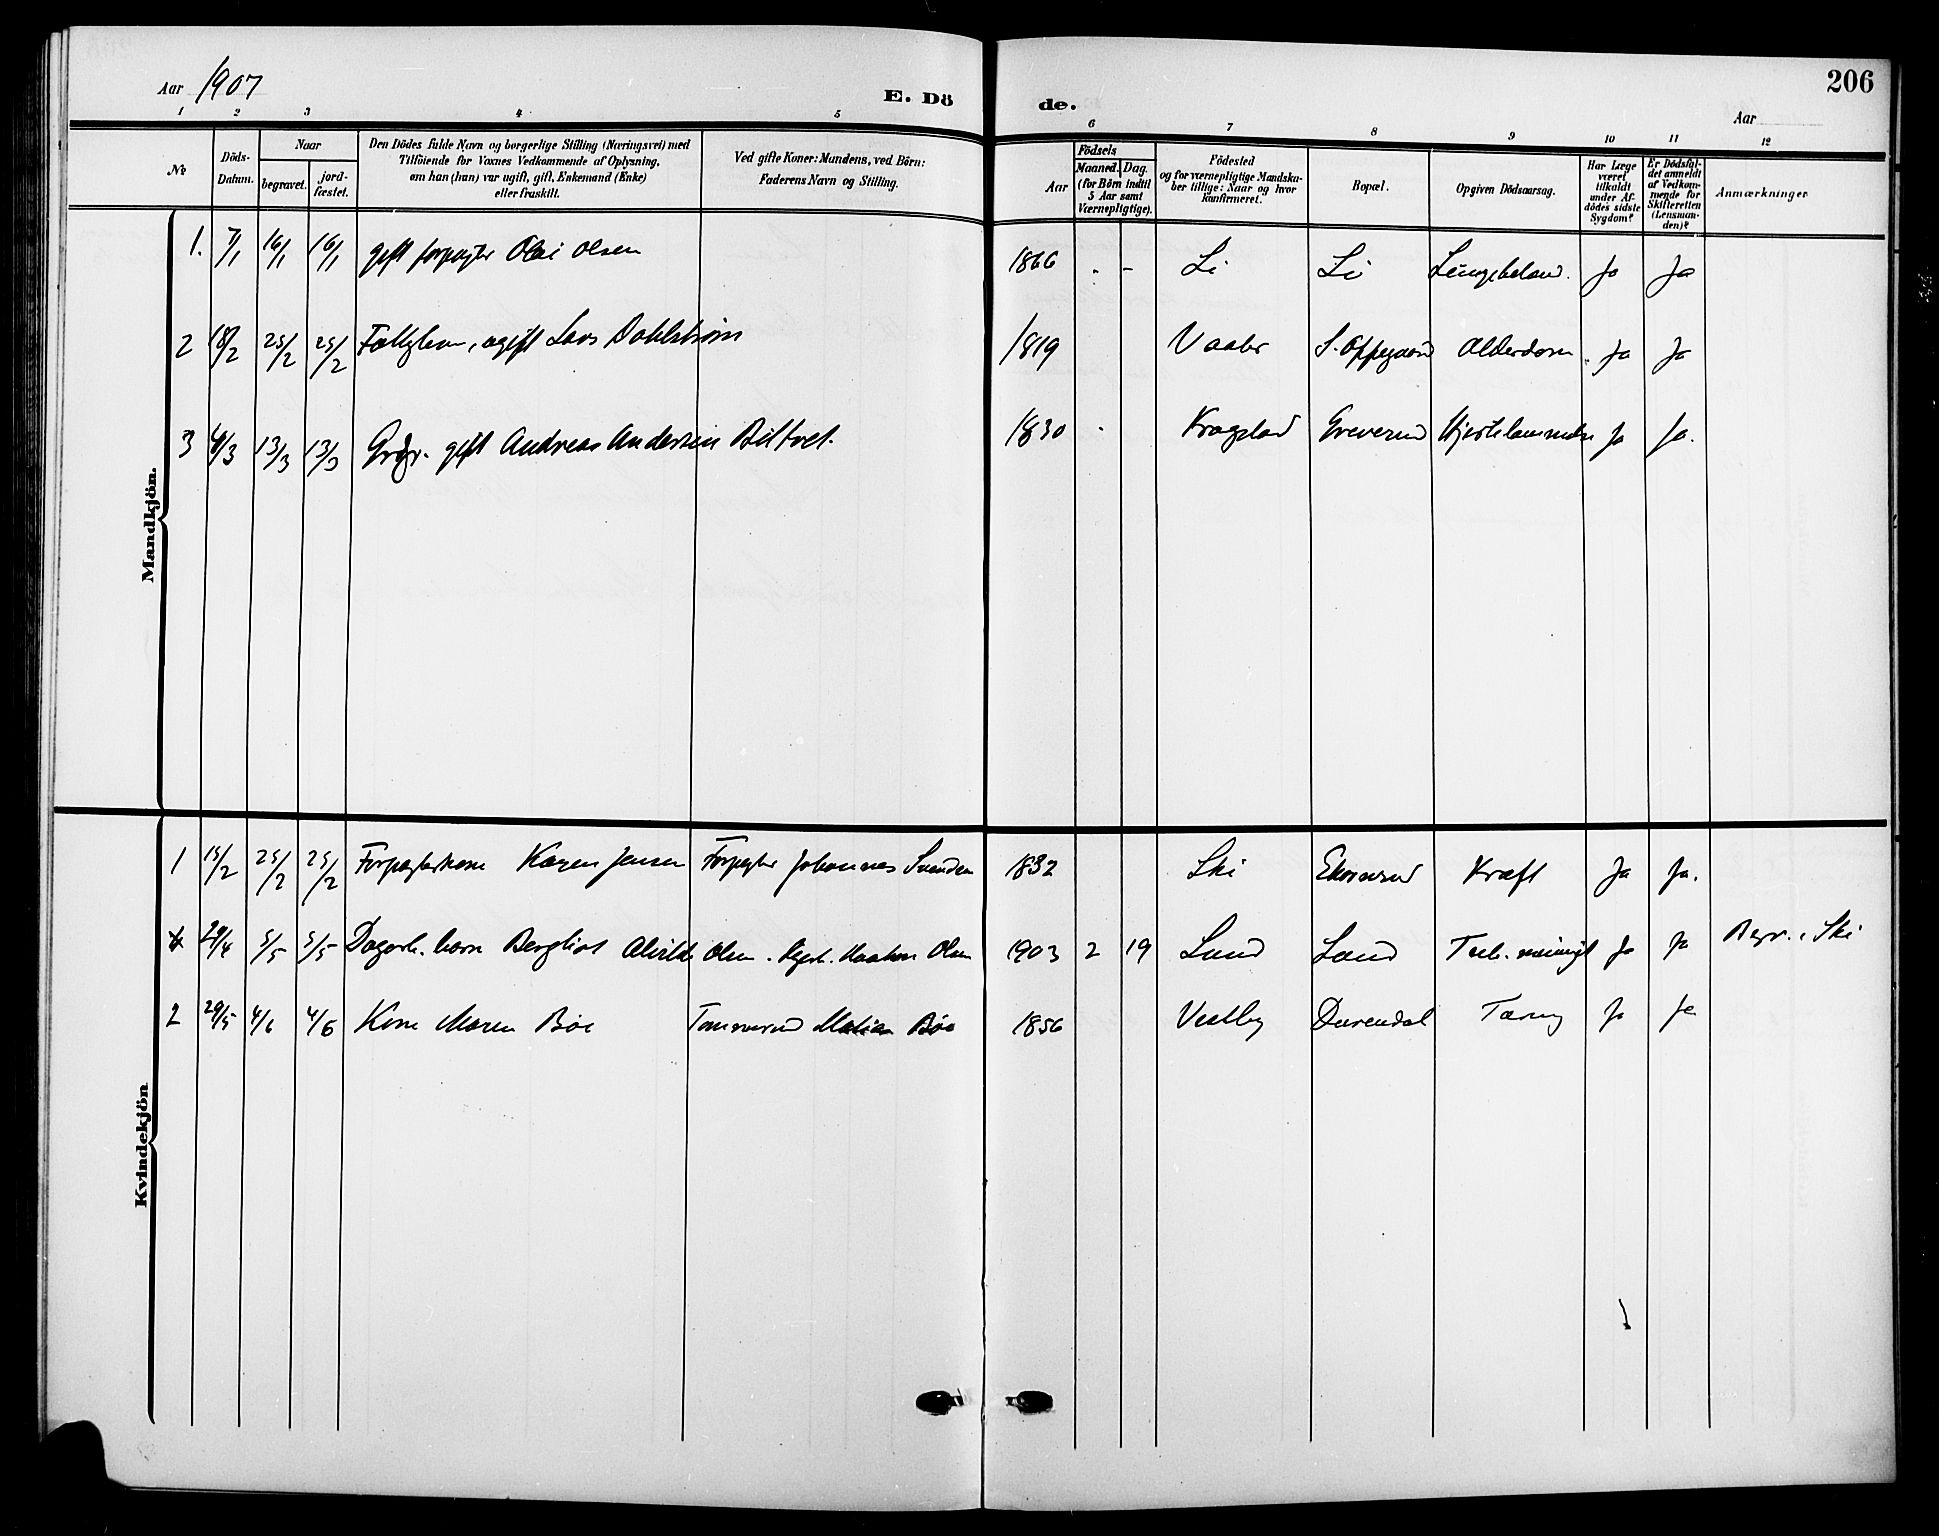 206
Aar 1907
E. Dö de.
Aar
1 2 3 4 5 6 7 8 9 10 11 12
No
Döds-
Datum.
Naar
begravet.
jord-
fæstet.
Den Dödes fulde Navn og borgerlige Stilling (Næringsvei) med
Tilföiende for Voxnes Vedkommende af Oplysning,
om han (hun) var ugift, gift, Enkemand (Enke)
eller fraskilt.
Ved gifte Koner: Mandens, ved Börn:
Faderens Navn og Stilling.
Födsels
Aar
Maaned. Dag.
(for Börn indtil
5 Aar samt
Værnepligtige).
Födested
og for værnepligtige Mandska-
ber tillige: Naar og hvor
konfirmeret.
Bopæl.
Opgiven Dödsaarsag.
Har Læge
været
tilkaldt
under Af-
dödes sidste
Sygdom?
Er Dödsfal-
det anmeldt
af Vedkom-
mende for
Skifteretten
(Lensman-
den)?
Anmærkninger
Mandkjön.
1. 7/1 16/1 16/1 gift forpagter Olai Olsen 1866 . - Li Li Ja Ja
2 18/2 25/2 25/2 ugift Lars Dahlstrøm 1819 Vaaler S. Oppegaard Alderdom Ja Ja
3 4/3 13/3 13/3 gift Andreas Andersen Bittvet. 1830 . Kragstad Greverud Hjertelammelse Ja Ja.
Kvindekjön
1 15/2 25/2 25/2 Forpagterkone Karen Jensen Forpagter Johannes Svendsen 1832 Ski Ekornrud Kræft Ja Ja.
29/4 5/5 5/5 Dagarb. barn Bergliot Alvilde Olsen . Dagarb. Haakon Olsen 1903 2 19 Sand Tub. meningit Ja Ja Begr. i Ski
2 29/5 4/6 4/6 Kone Maren Bøe Tømmermd Bøe 1856 Vestby Tæring Ja Ja